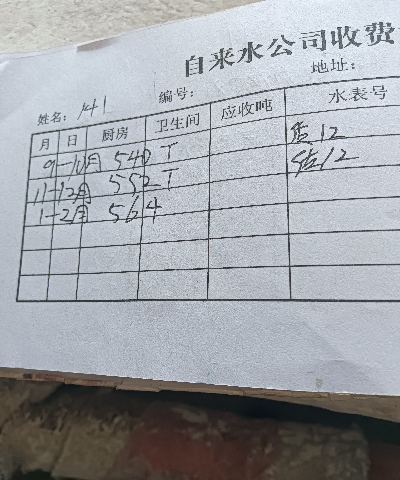 自来水公司收费
姓名：141 编号： 地址：
月 日 厨房 卫生间 应收吨 水表号
9-10月 540T 12
11-12月 552T 12
1-2月 564